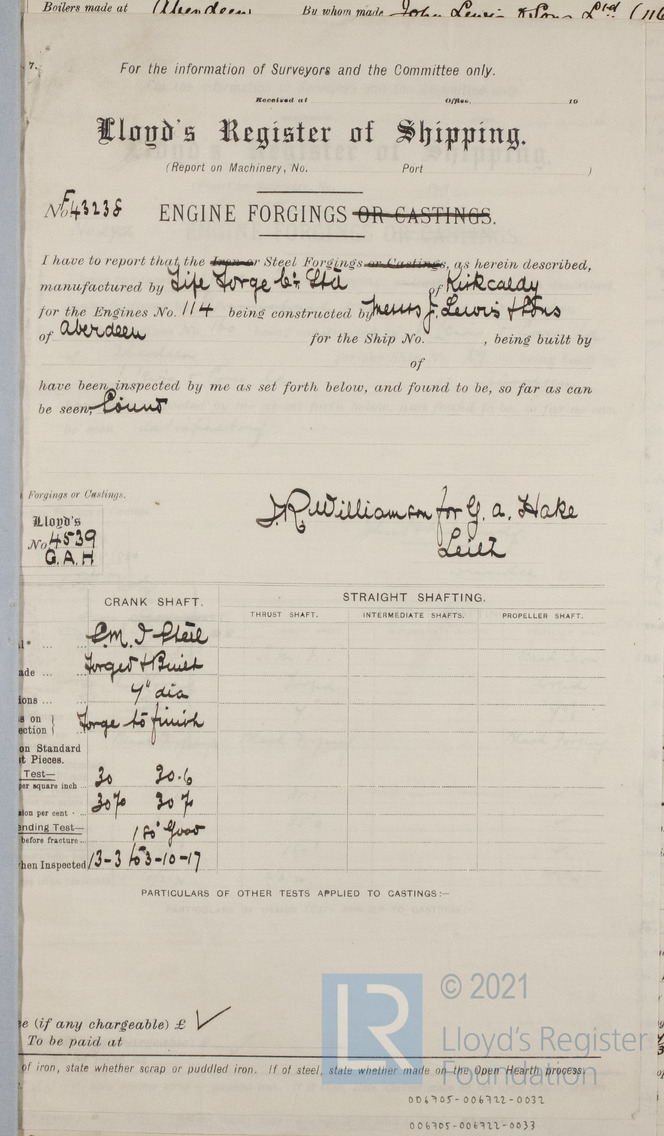 Boilers made at Aberdeen By whom made John Lewis & Sons Ltd (116
7.
For the information of Surveyors and the Committee only.
Received at Office. 19
Lloyd's Register of Shipping.
(Report on Machinery, No. Port )
No F43238
ENGINE FORGINGS OR CASTINGS.
I have to report that the Iron or Steel Forgings or Castings, as herein described,
manufactured by Fife Forge Co Ltd of Kirkcaldy
for the Engines No. 114 being constructed by Messrs J. Lewis & Sons
of Aberdeen for the Ship No. , being built by
of
have been inspected by me as set forth below, and found to be, so far as can
be seen, Sound
Forgings or Castings.
J.R. Williamson for G. A. Hake
Leith
Lloyd's
No 4539
G.A.H
CRANK SHAFT. STRAIGHT SHAFTING.
THRUST SHAFT. INTERMEDIATE SHAFTS. PROPELLER SHAFT.
l* ... S.M. I Steel
ade ... Forged & Built
ions ... 7" dia
s on } ection } Forge to finish
on Standard
t Pieces.
Test—
per square inch ... 30 30.6
sion per cent ... 30% 30%
ending Test—
before fracture ... 180° Good
hen Inspected 13-3 to 3-10-17
PARTICULARS OF OTHER TESTS APPLIED TO CASTINGS:—
e (if any chargeable) £ ✓
To be paid at
of iron, state whether scrap or puddled iron. If of steel, state whether made on the Open Hearth process.
LR
© 2021
Lloyd's Register
Foundation
006705-006722-0032
006705-006722-0033